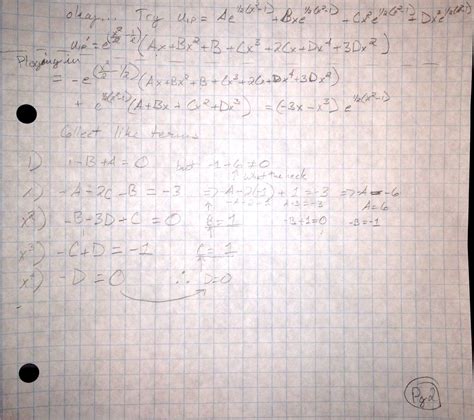 okay... Try u₁p = Ae^½(x²-1) + Bxe^½(x²-1) + Cx²e^½(x²-1) + Dx³e^½(x²-1)
u₁p' = e^(x²/2 - ½) (Ax + Bx² + B + Cx³ + 2Cx + Dx⁴ + 3Dx²)
Plugging in
= -e^(x²/2 - ½) (Ax + Bx² + B + Cx³ + 2Cx + Dx⁴ + 3Dx²)
+ e^½(x²-1) (A + Bx + Cx² + Dx³) = (-3x - x³) e^½(x²-1)
Collect like terms
1) -B + A = 0 but -1 + 6 ≠ 0
↑ what the heck
x) -A - 2C - B = -3 => -A - 2(1) + 1 = -3 => -A = -6
A = 6
x²) -B - 3D - C = 0 C = 1 -B + 1 = 0 -B = -1
x³) -C + D = -1 C = 1
x⁴) -D = 0 ∴ D = 0
Pg 2